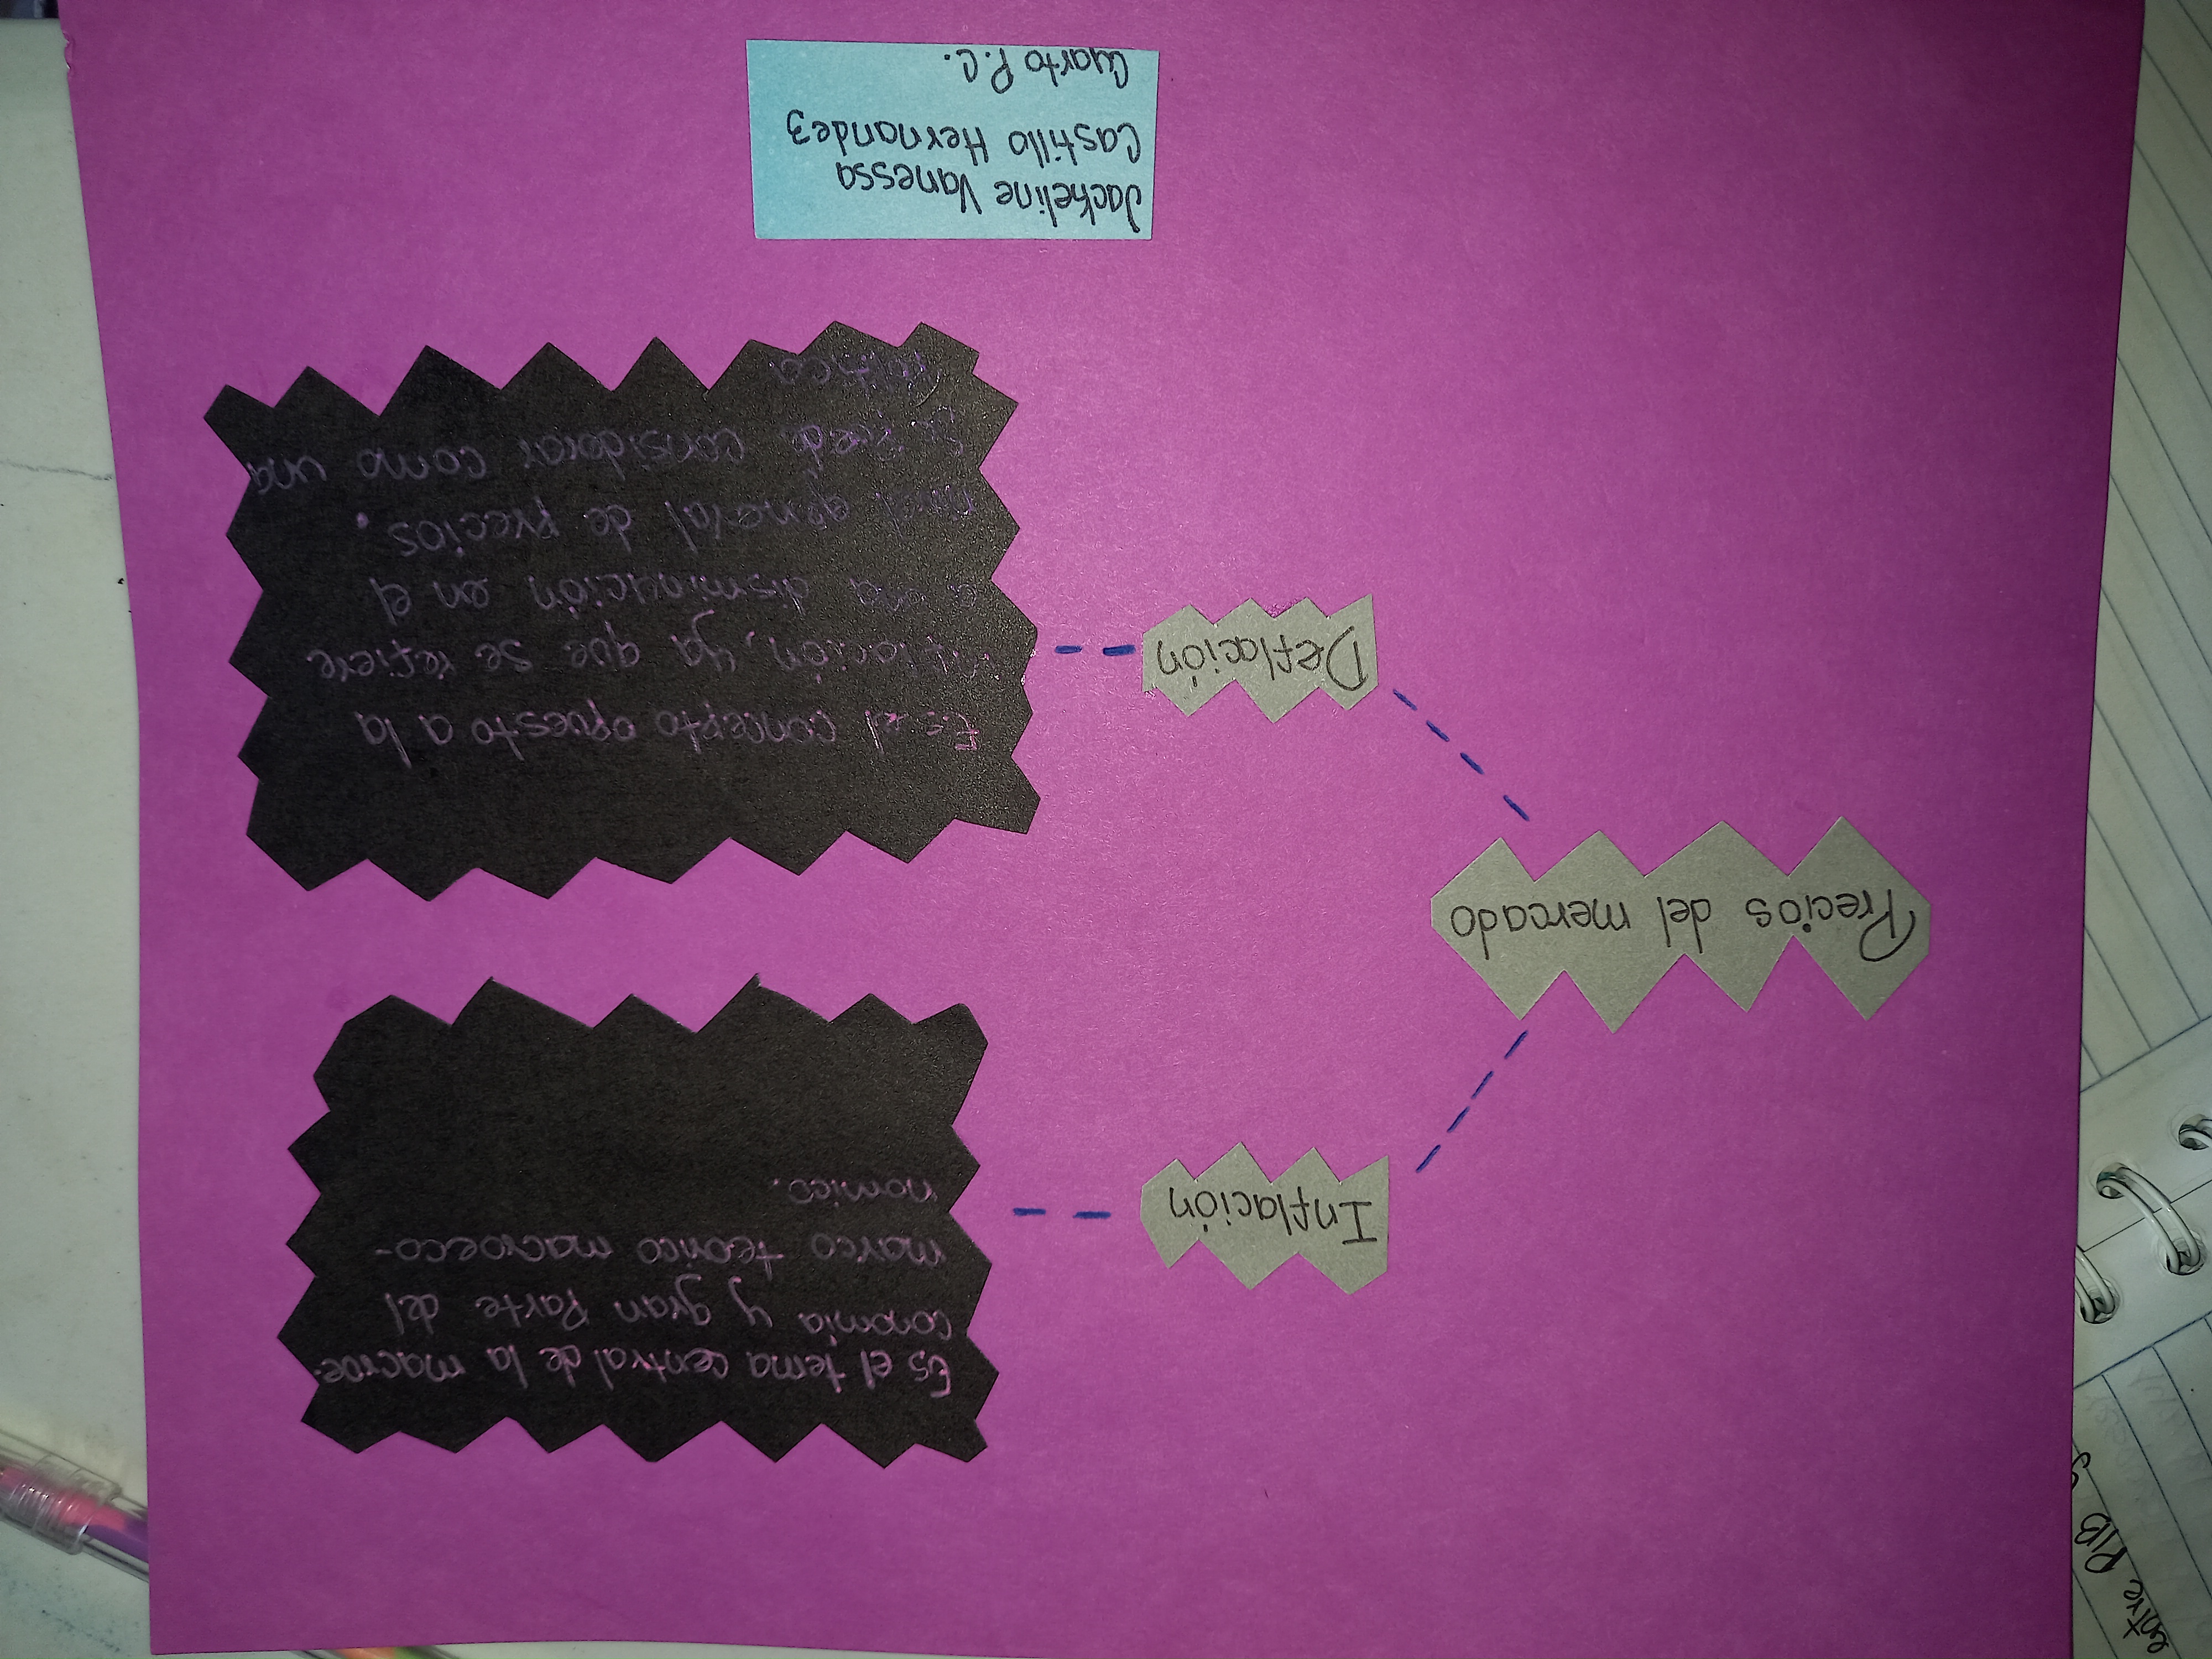 Precios del mercado
Inflación
Es el tema central de la macroe-
conomía y gran Parte del
marco teórico macroeco-
nomico.
Deflación
Es el concepto opuesto a la
inflación, ya que se refiere
a una disminución en el
nivel general de precios.
Se puede considerar como una
Jackeline Vanessa
Castillo Hernandez
Cuarto P.C.
entre PIB y